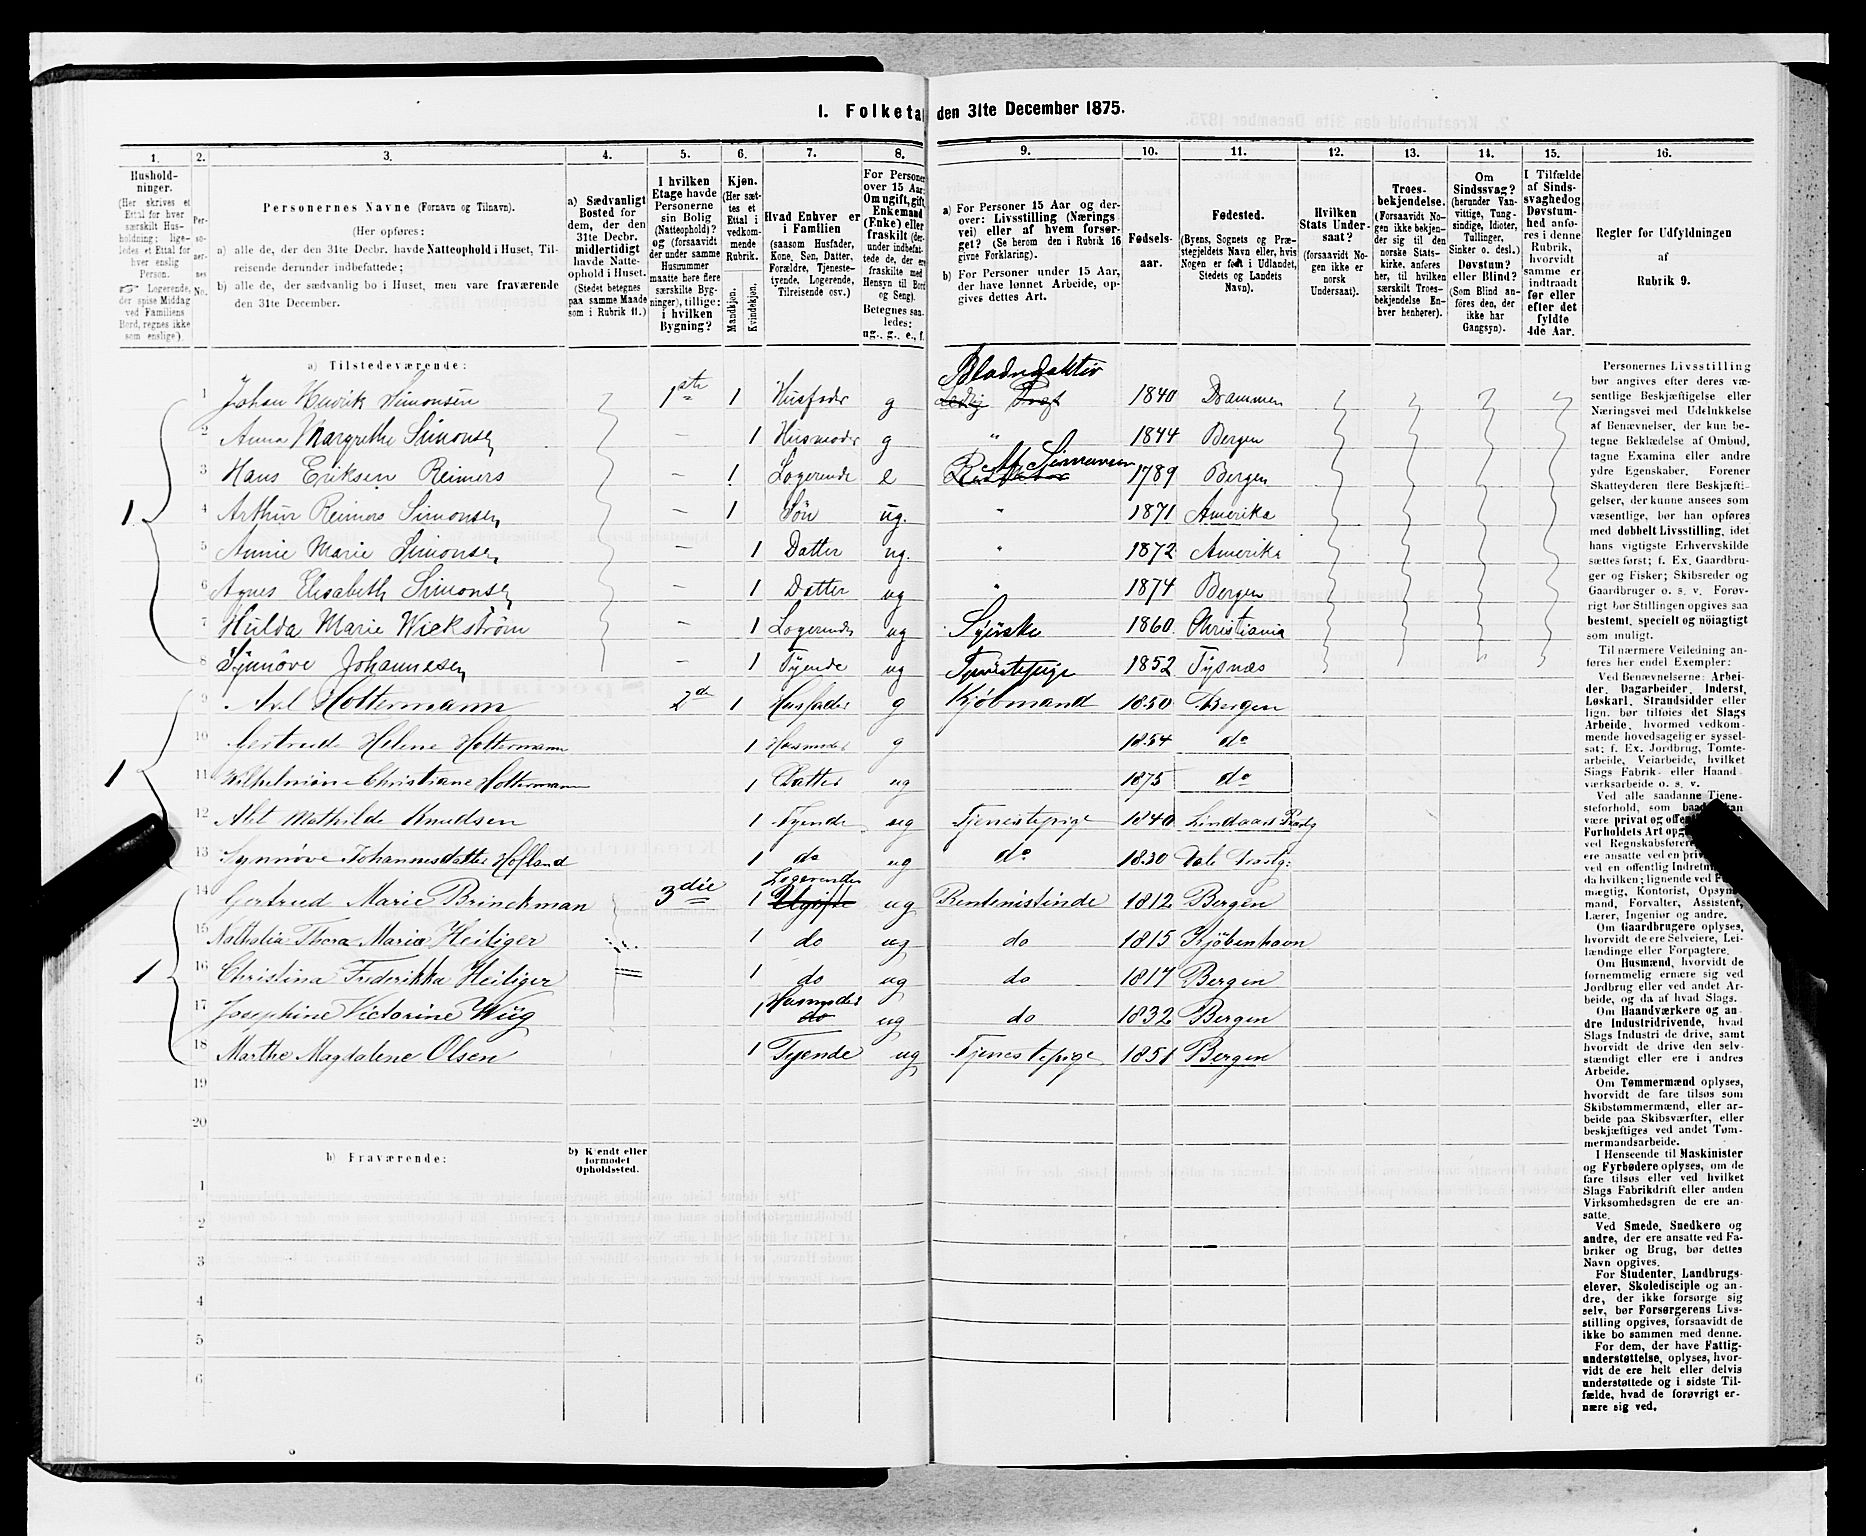 1. Folketal den 31te December 1875.
1. 2. 3. 4. 5. 6. 7. 8. 9. 10. 11. 12. 13. 14. 15. 16.
Hushold-
ninger.
(Her skrives et
Ettal for hver
særskilt Hus-
holdning; lige-
ledes et Ettal for
hver enslig
Person.
Logerende,
der spise Middag
ved Familiens
Bord, regnes ikke
som enslige).
Per-
so-
ner-
nes
No.
Personernes Navne (Fornavn og Tilnavn).
(Her opføres:
a) alle de, der den 31te Decbr. havde Natteophold i Huset, Til-
reisende derunder indbefattede;
b) alle de, der sædvanlig bo i Huset, men vare fraværende
den 31te December.
a) Sædvanligt
Bosted for
dem, der den
31te Decbr.
midlertidigt
havde Natte-
ophold i Huset.
(Stedet betegnes
paa samme Maade
som i Rubrik 11.)
I hvilken
Etage havde
Personerne
sin Bolig
(Natteophold)?
og (forsaavidt
der under samme
Husnummer
maatte høre flere
særskilte Byg-
ninger), tillige:
i hvilken
Bygning?
Kjøn.
(Her sæt-
tes et
Ettal i
vedkom-
mende
Rubrik.
Mandkjøn.
Kvindekjøn.
Hvad Enhver er
i Familien
(saasom Husfader,
Kone, Søn, Datter,
Forældre, Tjeneste-
tyende, Logerende,
Tilreisende osv.)
For Personer
over 15 Aar:
Om ugift, gift,
Enkemand
(Enke) eller
fraskilt (der-
under indbefat-
tede de, der ere
fraskilte med
Hensyn til Bord
og Seng).
Betegnes saa-
ledes:
ug., g., e., f.
a) For Personer 15 Aar og der-
over: Livsstilling (Nærings
vei) eller af hvem forsør-
get? (Se herom den i Rubrik 16
givne Forklaring).
b) For Personer under 15 Aar,
der have lønnet Arbeide, op-
gives dettes Art.
Fødsels-
aar.
Fødested.
(Byens, Sognets og Præ-
stegjeldets Navn eller, hvis
Nogen er født i Udlandet,
Stedets og Landets
Navn).
Hvilken
Stats Under-
saat?
(forsaavidt No-
gen ikke er
norsk
Undersaat).
Troes-
bekjendelse.
(Forsaavidt No-
gen ikke bekjen-
der sig til den
norske Stats-
kirke, anføres
her, til hvilken
særskilt Troes-
bekjendelse En-
hver henhører).
Om
Sindssvag?
(herunder Van-
vittige, Tung-
sindige, Idioter,
Tullinger,
Sinker o. desl.)
Døvstum?
eller Blind?
(Som Blind an-
føres den, der
ikke har
Gangsyn).
I Tilfælde
af Sinds-
svaghed og
Døvstum-
hed anfø-
res i denne
Rubrik,
hvorvidt
samme er
indtraadt
før eller
efter det
fyldte
4de Aar.
Regler for Udfyldningen
af
Rubrik 9.
a) Tilstedeværende:
Bladredaktør
1 Johan Henrik Simonsen 1ste 1 Husfader g 1840 Drammen
2 Anna Margrethe Simonsen – 1 Husmoder g " 1844 Bergen
3 Hans Eriksen Reimers – 1 Logerende e 1789 Bergen
4 Arthur Reimers Simonsen – 1 Søn ug. " 1871 Amerika
5 Annie Marie Simonsen – 1 Datter ug. " 1872 Amerika
6 Agnes Elisabeth Simonsen – 1 Datter ug " 1874 Bergen
7 Hulda Marie Wickstrøm – 1 Logerende ug Syerske 1860 Christiania
1
8 Synnöve Johannesen – 1 Tyende ug Tjenestepige 1852 Tysnæs
9 Axel Holtermann 2d 1 Husfader g Kjøbmand 1850 Bergen
10 Gertrude Helene Holtermann 1 Husmoder g 1854 do
1
11 Wilhelmine Christiane Holtermann 1 Datter ug 1875 do
12 Alet Mathilde Knudsen 1 Tyende ug Tjenestepige 1840 Lindaas Præstg
13 Synnøve Johannesdatter Hofland 1 do ug do 1830 Dale Præstg:
Logerende
14 Gertrud Marie Brinckman 3die 1 Ugifte ug Rentenistinde 1812 Bergen
15 Nathalia Thora Maria Heiliger 1 do ug do 1815 Kjöbenhavn
1
16 Christina Frederikka Heiliger 1 do ug do 1817 Bergen
Husmoder
17 Josephine Victorine Wiig 1 do ug do 1832 Bergen
18 Marthe Magdalene Olsen 1 Tyende ug Tjenestepige 1851 Bergen
19
20
b) Fraværende:
b) Kjendt eller
formodet
Opholdssted.
1
2
3
4
5
6
Personernes Livsstilling
bør angives efter deres væ-
sentlige Beskjæftigelse eller
Næringsvei med Udelukkelse
af Benævnelser, der kun be-
tegne Beklædelse af Ombud,
tagne Examina eller andre
ydre Egenskaber. Forener
Skatteyderen flere Beskjæfti-
gelser, der kunne ansees som
væsentlige, bør han opføres
med dobbelt Livsstilling, idet
hans vigtigste Erhvervskilde
sættes først; f. Ex. Gaardbru-
ger og Fisker; Skibsreder og
Gaardbruger o. s. v. Forøv-
rigt bør Stillingen opgives saa
bestemt, specielt og nöiagtigt
som muligt.
Til nærmere Veiledning an-
føres her endel Exempler:
Ved Benævnelserne: Arbei-
der, Dagarbeider, Inderst,
Løskarl, Strandsidder eller
lign. bør tilføies det Slags
Arbeide, hvormed vedkom-
mende hovedsagelig er syssel-
sat; f. Ex. Jordbrug, Tomte-
arbeide, Veiarbeide, hvilket
Slags Fabrik- eller Haand-
værksarbeide o. s. v.
Ved alle saadanne Tjene-
steforhold, som baade kan
være privat og offentligt,
Forholdets Art
ved
ere ansatte ved en
eller en offentlig Indretning,
da hvilken; lignende ved
mægtig, Kontorist, Opsyns-
mand, Forvalter, Assistent,
Lærer, Ingeniør og andre.
Om Gaardbrugere oplyses,
hvorvidt de ere Selveiere, Lei-
lændinge eller Forpagtere.
Om Husmænd, hvorvidt de
fornemmelig ernære sig ved
Jordbrug eller ved andet Ar-
beide, og da af hvad Slags.
Om Haandværkere og an-
dre Industridrivende, hvad
Slags Industri de drive, samt
hvorvidt de drive den selv-
stændigt eller ere i andres
Arbeide.
Om Tømmermænd oplyses,
hvorvidt de fare tilsøs som
Skibstømmermænd, eller ar-
beide paa Skibsværfter, eller
beskjæftiges ved andet Tøm-
mermandsarbeide.
I Henseende til Maskinister
og Fyrbødere oplyses, om de
fare tilsøs eller ved hvilket
Slags Fabrikdrift eller anden
Virksomhedsgren de ere an-
satte.
Ved Smede, Snedkere og
andre, der ere ansatte ved Fa-
briker og Brug, bør dettes
Navn opgives.
For Studenter, Landbrugs-
elever, Skoledisciple og an-
dre, der ikke forsørge sig
selv, bør Forsørgerens Livs-
stilling opgives, forsaavidt de
ikke bo sammen med denne.
For dem, der have Fattig-
understøttelse, oplyses, hvor-
vidt de ere helt eller delvis
understøttede og i sidste Til-
fælde, hvad de forøvrigt er-
nære sig ved.